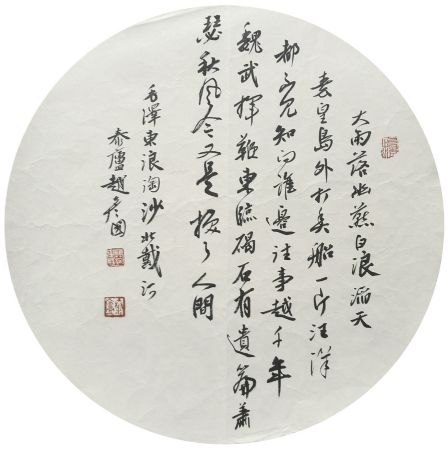 大雨落幽燕白浪滔天
秦皇島外打魚船一片汪洋
都不見知向誰邊往事越千年
魏武揮鞭東臨碣石有遺篇蕭
瑟秋風今又是換了人間
毛澤東浪淘沙北戴河
泰廬趙彦國